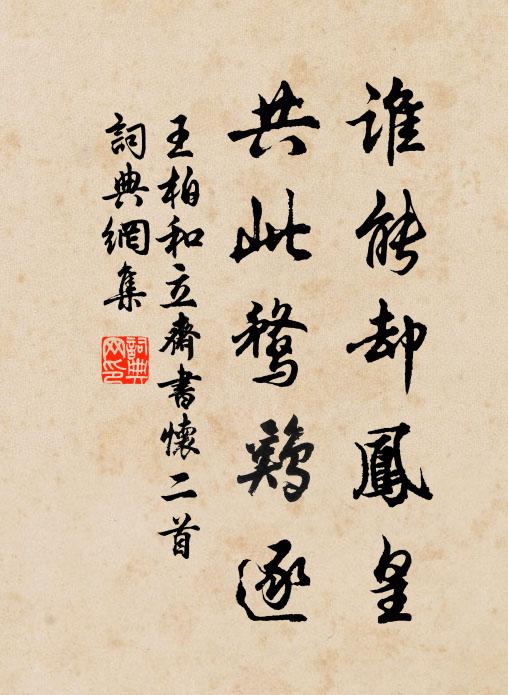 誰能却鳳皇
共此鶩鷄逐
王柏和立齋書懷二首
詞典網集
詞典
网印